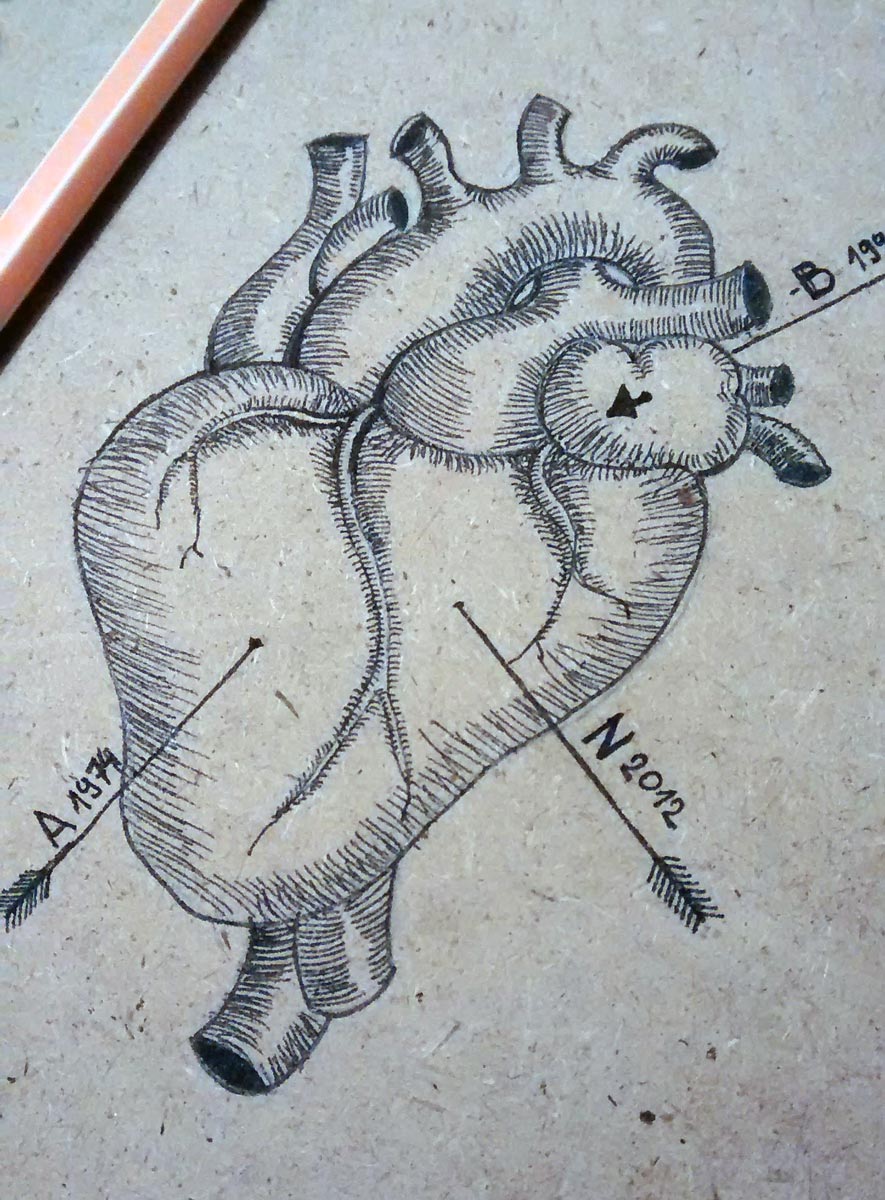 -B- 199
A 1974
N 2012